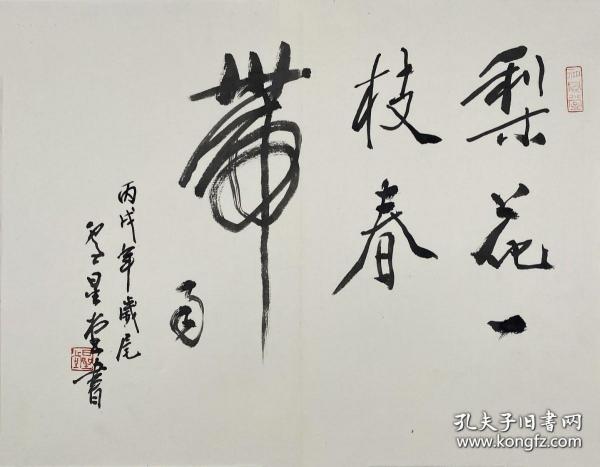 梨花一
枝春
带
雨
丙戌年歲尾
星
書
孔夫子旧书网
www.kongfz.com